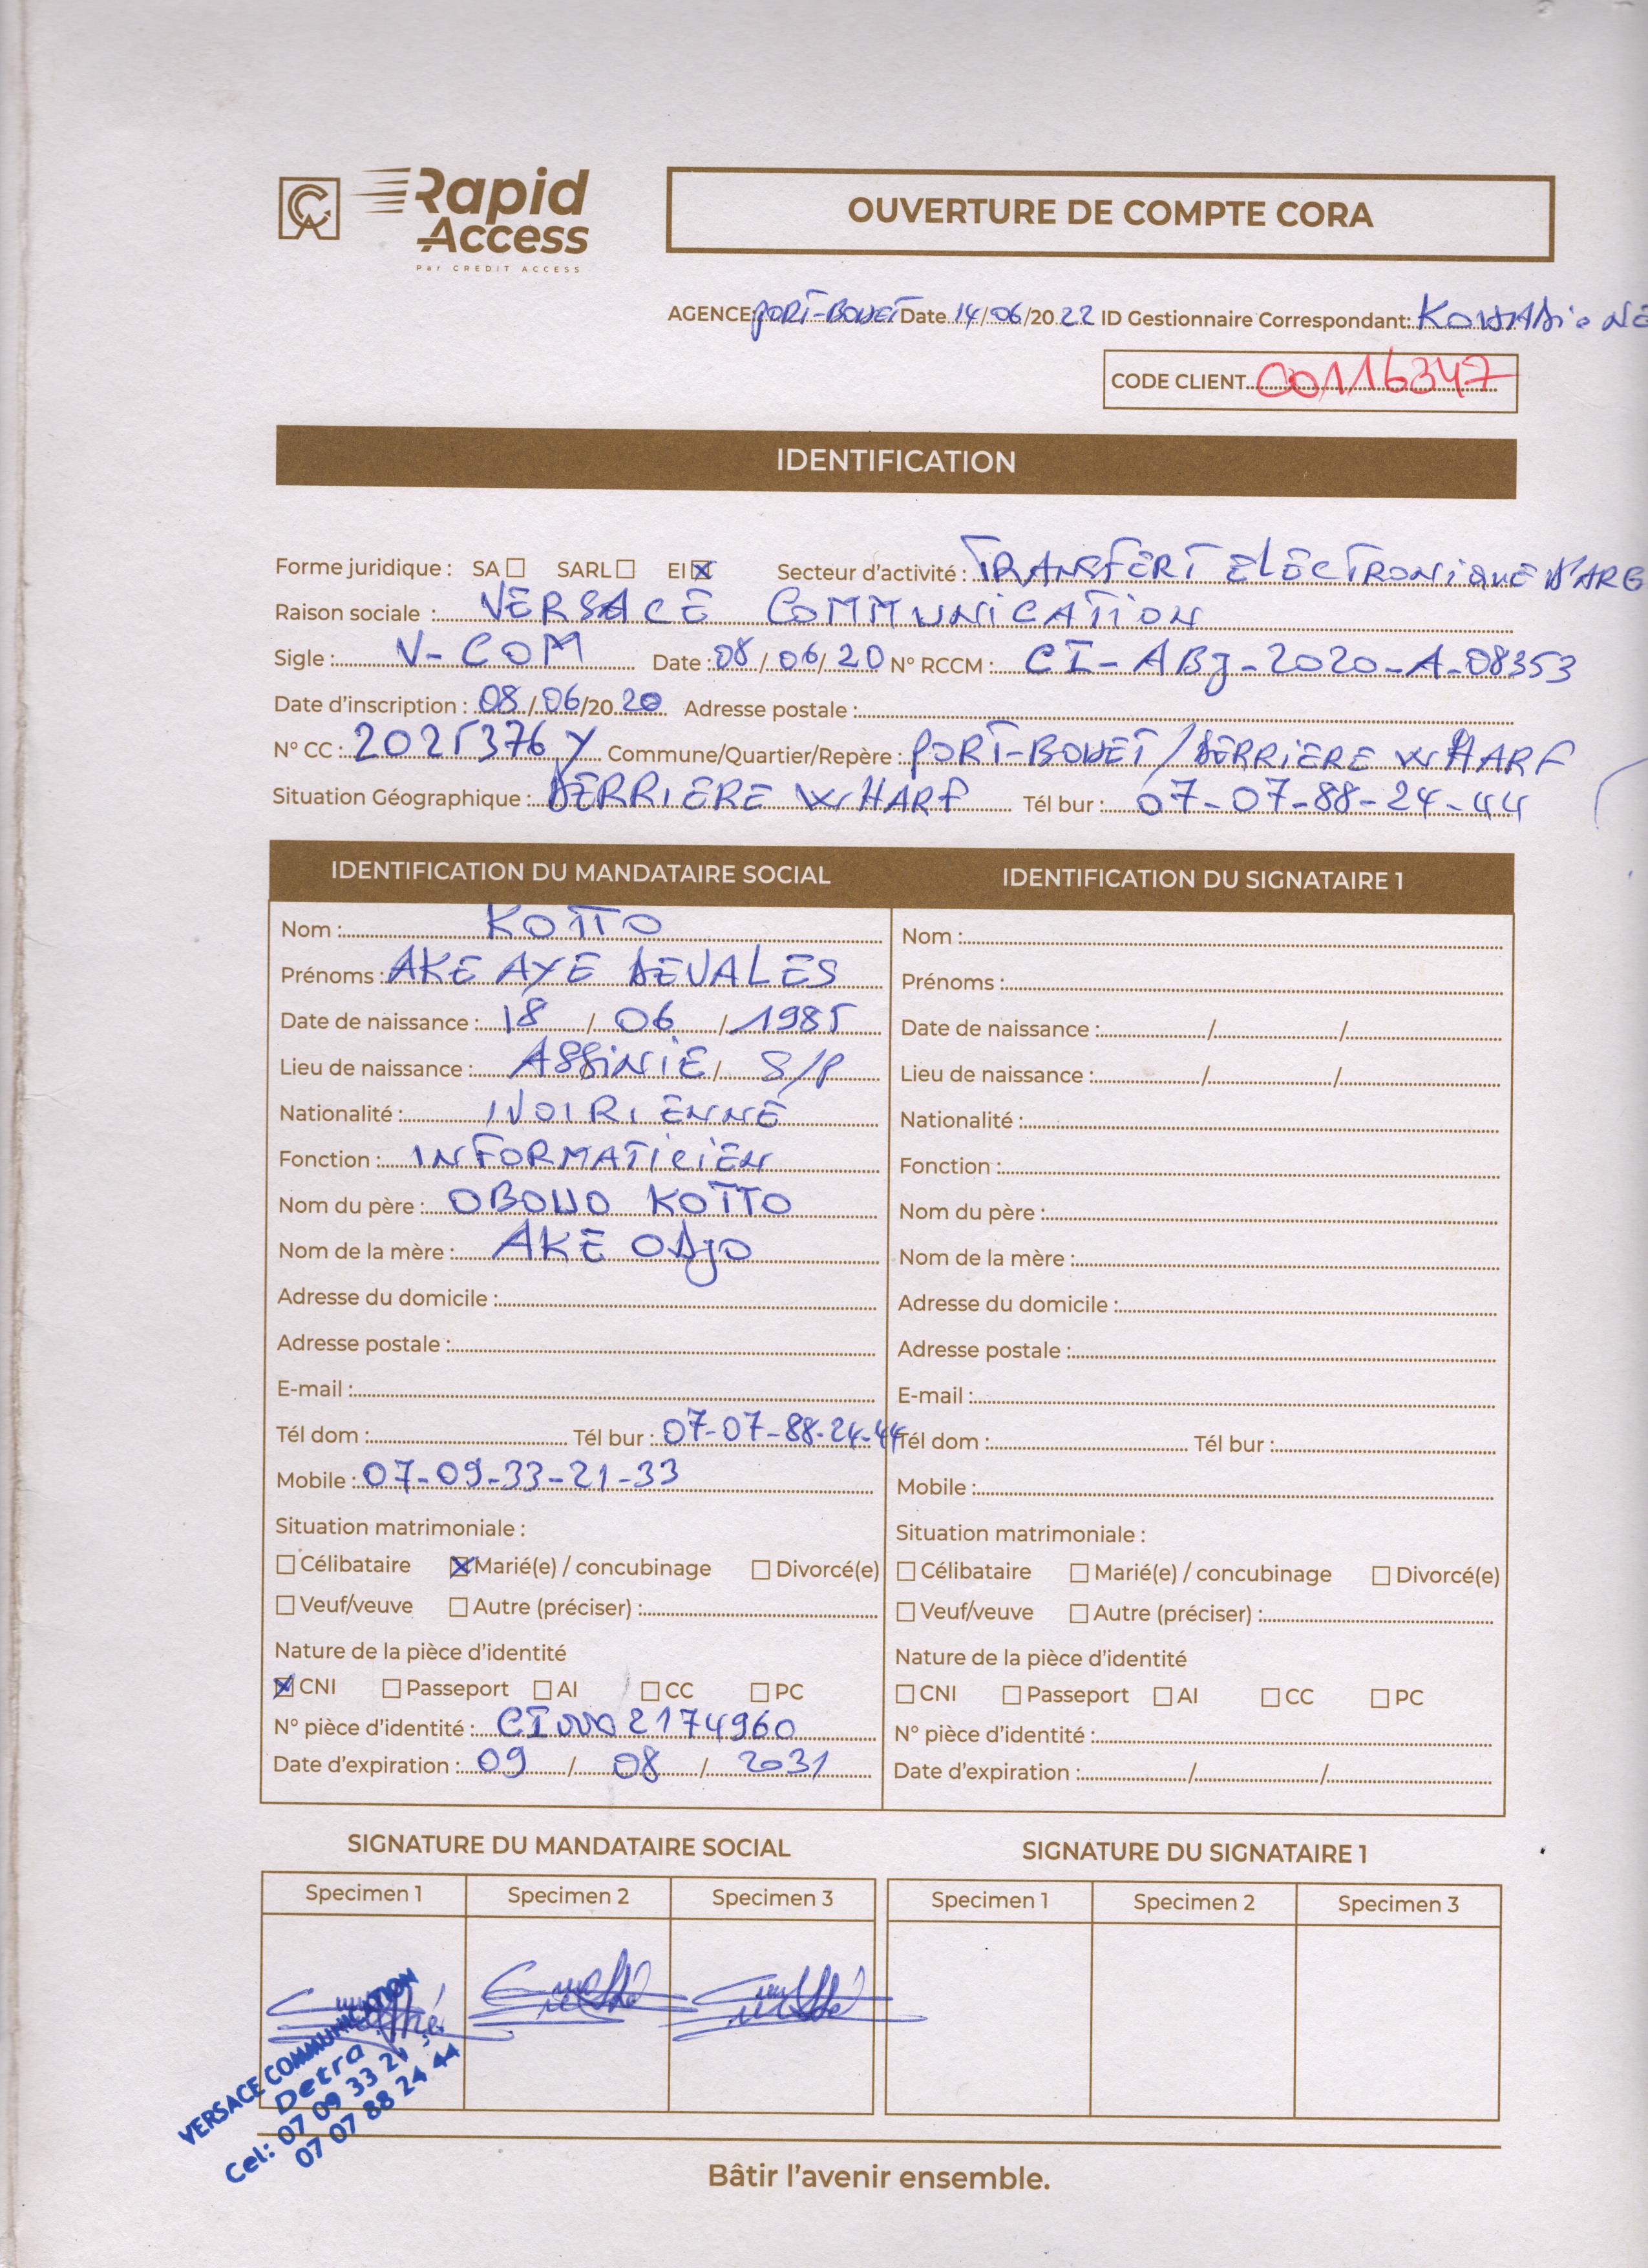 Rapid
Access
Par CREDIT ACCESS
OUVERTURE DE COMPTE CORA
AGENCE: PORT-BOUET Date 14/06/2022 ID Gestionnaire Correspondant:
CODE CLIENT 00116347
IDENTIFICATION
Forme juridique : SA SARL EI X Secteur d'activité : TRANSFERT ELECTRONIQUE D'ARG
Raison sociale : VERSACE COMMUNICATION
Sigle : V-COM Date : 08/06/20 N° RCCM : CI-ABJ-2020-A-08353
Date d'inscription : 08/06/2020 Adresse postale :
N° CC : 2025376 Y Commune/Quartier/Repère : PORT-BOUET/DERRIERE WHARF
Situation Géographique : DERRIERE WHARF Tél bur : 07-07-88-24-44
IDENTIFICATION DU MANDATAIRE SOCIAL IDENTIFICATION DU SIGNATAIRE 1
Nom : KOTTO
Prénoms : AKE AYE DEVALES
Date de naissance : 18 / 06 / 1985
Lieu de naissance : ASSINIE / S/P
Nationalité : IVOIRIENNE
Fonction : INFORMATICIEN
Nom du père : OBOUO KOTTO
Nom de la mère : AKE ODJO
Adresse du domicile :
Adresse postale :
E-mail :
Tél dom : Tél bur : 07-07-88-24-44
Mobile : 07-09-33-21-33
Situation matrimoniale :
Célibataire X Marié(e) / concubinage Divorcé(e)
Veuf/veuve Autre (préciser) :
Nature de la pièce d'identité
X CNI Passeport AI CC PC
N° pièce d'identité : CI0002174960
Date d'expiration : 09 / 08 / 2031
Nom :
Prénoms :
Date de naissance : / /
Lieu de naissance : / /
Nationalité :
Fonction :
Nom du père :
Nom de la mère :
Adresse du domicile :
Adresse postale :
E-mail :
Tél dom : Tél bur :
Mobile :
Situation matrimoniale :
Célibataire Marié(e) / concubinage Divorcé(e)
Veuf/veuve Autre (préciser) :
Nature de la pièce d'identité
CNI Passeport AI CC PC
N° pièce d'identité :
Date d'expiration : / /
SIGNATURE DU MANDATAIRE SOCIAL SIGNATURE DU SIGNATAIRE 1
Specimen 1 Specimen 2 Specimen 3 Specimen 1 Specimen 2 Specimen 3
VERSACE COMMUNICATION
Detra
Cel: 07 09 33 21
07 07 88 24 44
Bâtir l'avenir ensemble.